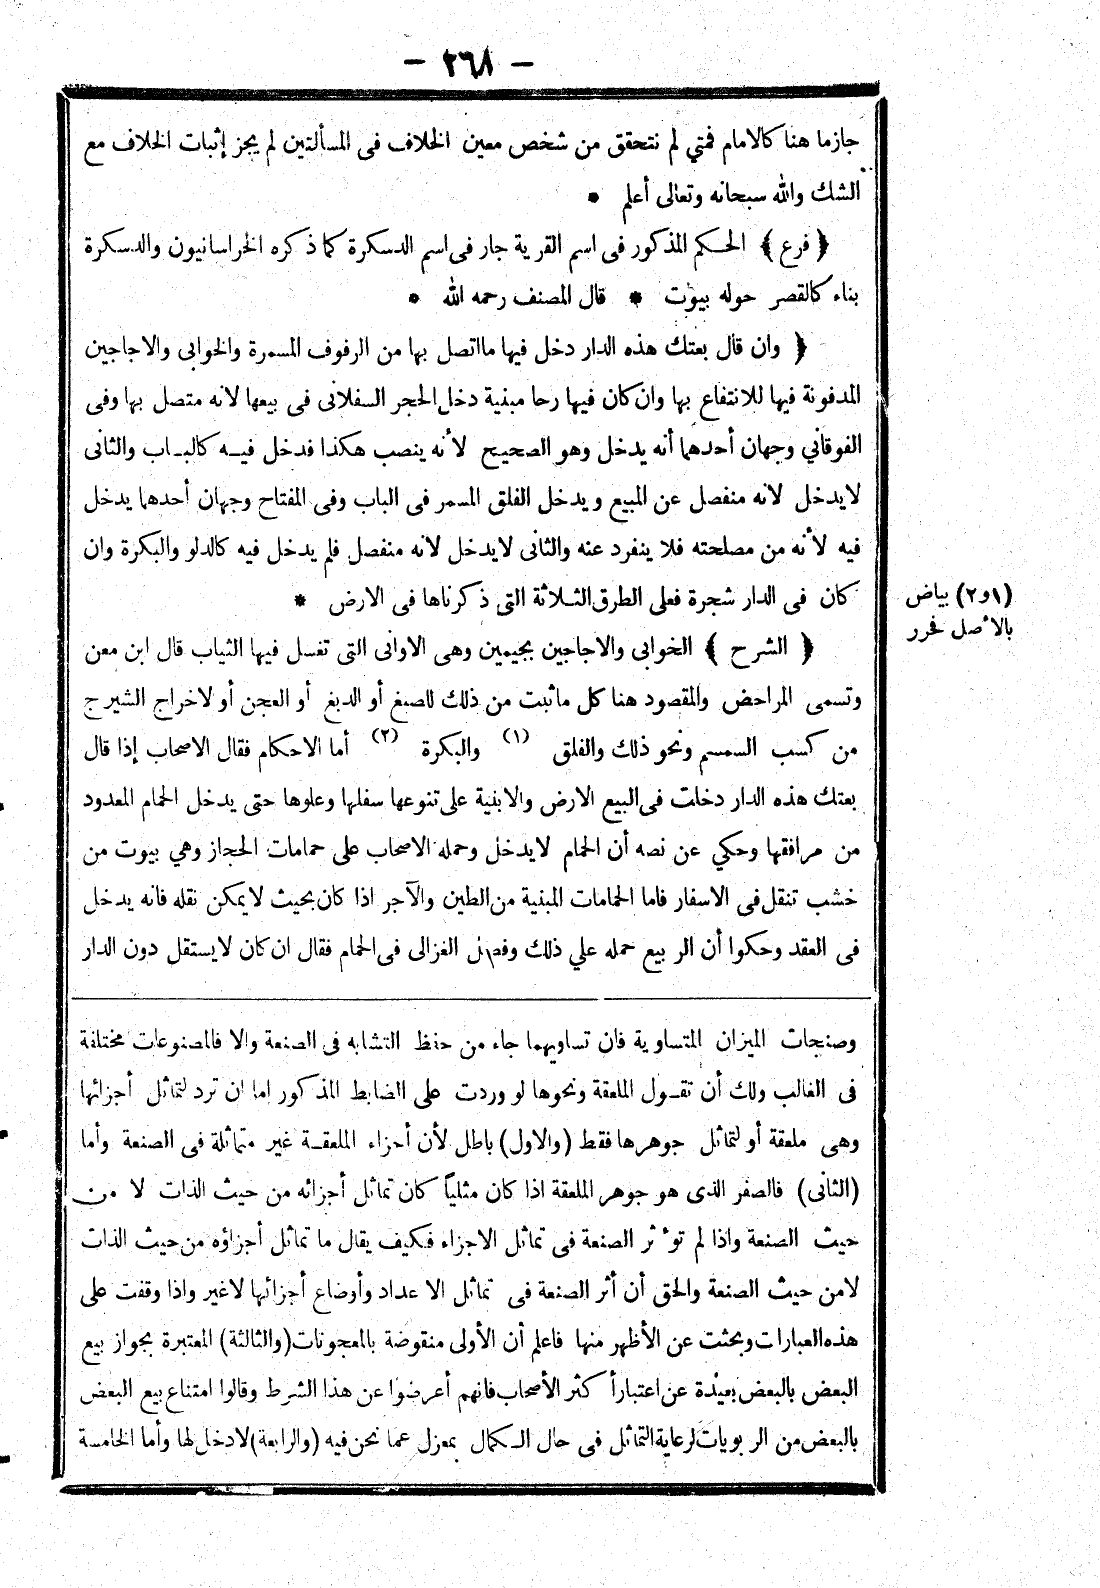 - ٢٦٨ -
جازما هنا كالامام فمتي لم نتحقق من شخص معين الخلاف فى المسألتين لم يجز إثبات الخلاف مع
الشك والله سبحانه وتعالى أعلم *
﴿ فرع ﴾ الحكم المذكور فى اسم القرية جار فى اسم الدسكرة كما ذكره الخراسانيون والدسكرة
بناء كالقصر حوله بيوت * قال المصنف رحمه الله *
﴿ وان قال بعتك هذه الدار دخل فيها مااتصل بها من الرفوف المسمرة والخوابى والاجاجين
المدفونة فيها للانتفاع بها وان كان فيها رحا مبنية دخل الحجر السفلانى فى بيعها لانه متصل بها وفى
الفوقاني وجهان أحدهما أنه يدخل وهو الصحيح لأنه ينصب هكذا فدخل فيه كالباب والثانى
لايدخل لانه منفصل عن المبيع ويدخل الغلق المسمر فى الباب وفى المفتاح وجهان أحدهما يدخل
فيه لأنه من مصلحته فلا ينفرد عنه والثانى لايدخل لانه منفصل فلم يدخل فيه كالدلو والبكرة وان
كان فى الدار شجرة فعلى الطرق الثلاثة التى ذكرناها فى الارض *
(١و٢) بياض
بالأصل فحرر
﴿ الشرح ﴾ الخوابى والاجاجين بجيمين وهى الاوانى التى تغسل فيها الثياب قال ابن معن
وتسمى المراحض والمقصود هنا كل ماثبت من ذلك للصبغ أو الدبغ أو العجن أو لاخراج الشيرج
من كسب السمسم ونحو ذلك والغلق (١) والبكرة (٢) أما الاحكام فقال الاصحاب إذا قال
بعتك هذه الدار دخلت فى البيع الارض والابنية على تنوعها سفلها وعلوها حتى يدخل الحمام المعدود
من مرافقها وحكي عن نصه أن الحمام لايدخل وحمله الاصحاب على حمامات الحجاز وهي بيوت من
خشب تنقل فى الاسفار فاما الحمامات المبنية من الطين والآجر اذا كان بحيث لايمكن نقله فانه يدخل
فى العقد وحكوا أن الربيع حمله علي ذلك وفصل الغزالى فى الحمام فقال ان كان لايستقل دون الدار
وصنجات الميزان المتساوية فان تساويهما جاء من حفظ التشابه فى الصنعة والا فالمصنوعات مختلفة
فى الغالب ولك أن تقول الملعقة ونحوها لو وردت على الضابط المذكور إما ان ترد لتماثل أجزائها
وهى ملعقة أو لتماثل جوهرها فقط (والاول) باطل لأن أجزاء الملعقة غير متماثلة فى الصنعة وأما
(الثانى) فالصفر الذى هو جوهر الملعقة اذا كان مثلياً كان تماثل أجزائه من حيث الذات لا من
حيث الصنعة واذا لم تؤثر الصنعة فى تماثل الاجزاء فكيف يقال ما تماثل أجزاؤه من حيث الذات
لامن حيث الصنعة والحق أن أثر الصنعة فى تماثل الاعداد وأوضاع أجزائها لاغير واذا وقفت على
هذه العبارات وبحثت عن الأظهر منها فاعلم أن الأولى منقوضة بالمعجونات (والثالثة) المعتبرة بجواز بيع
البعض بالبعض بعيدة عن اعتبار أكثر الأصحاب فانهم أعرضوا عن هذا الشرط وقالوا امتناع بيع البعض
بالبعض من الربويات لرعاية التماثل فى حال الكمال بمعزل عما نحن فيه (والرابعة) لادخل لها وأما الخامسة